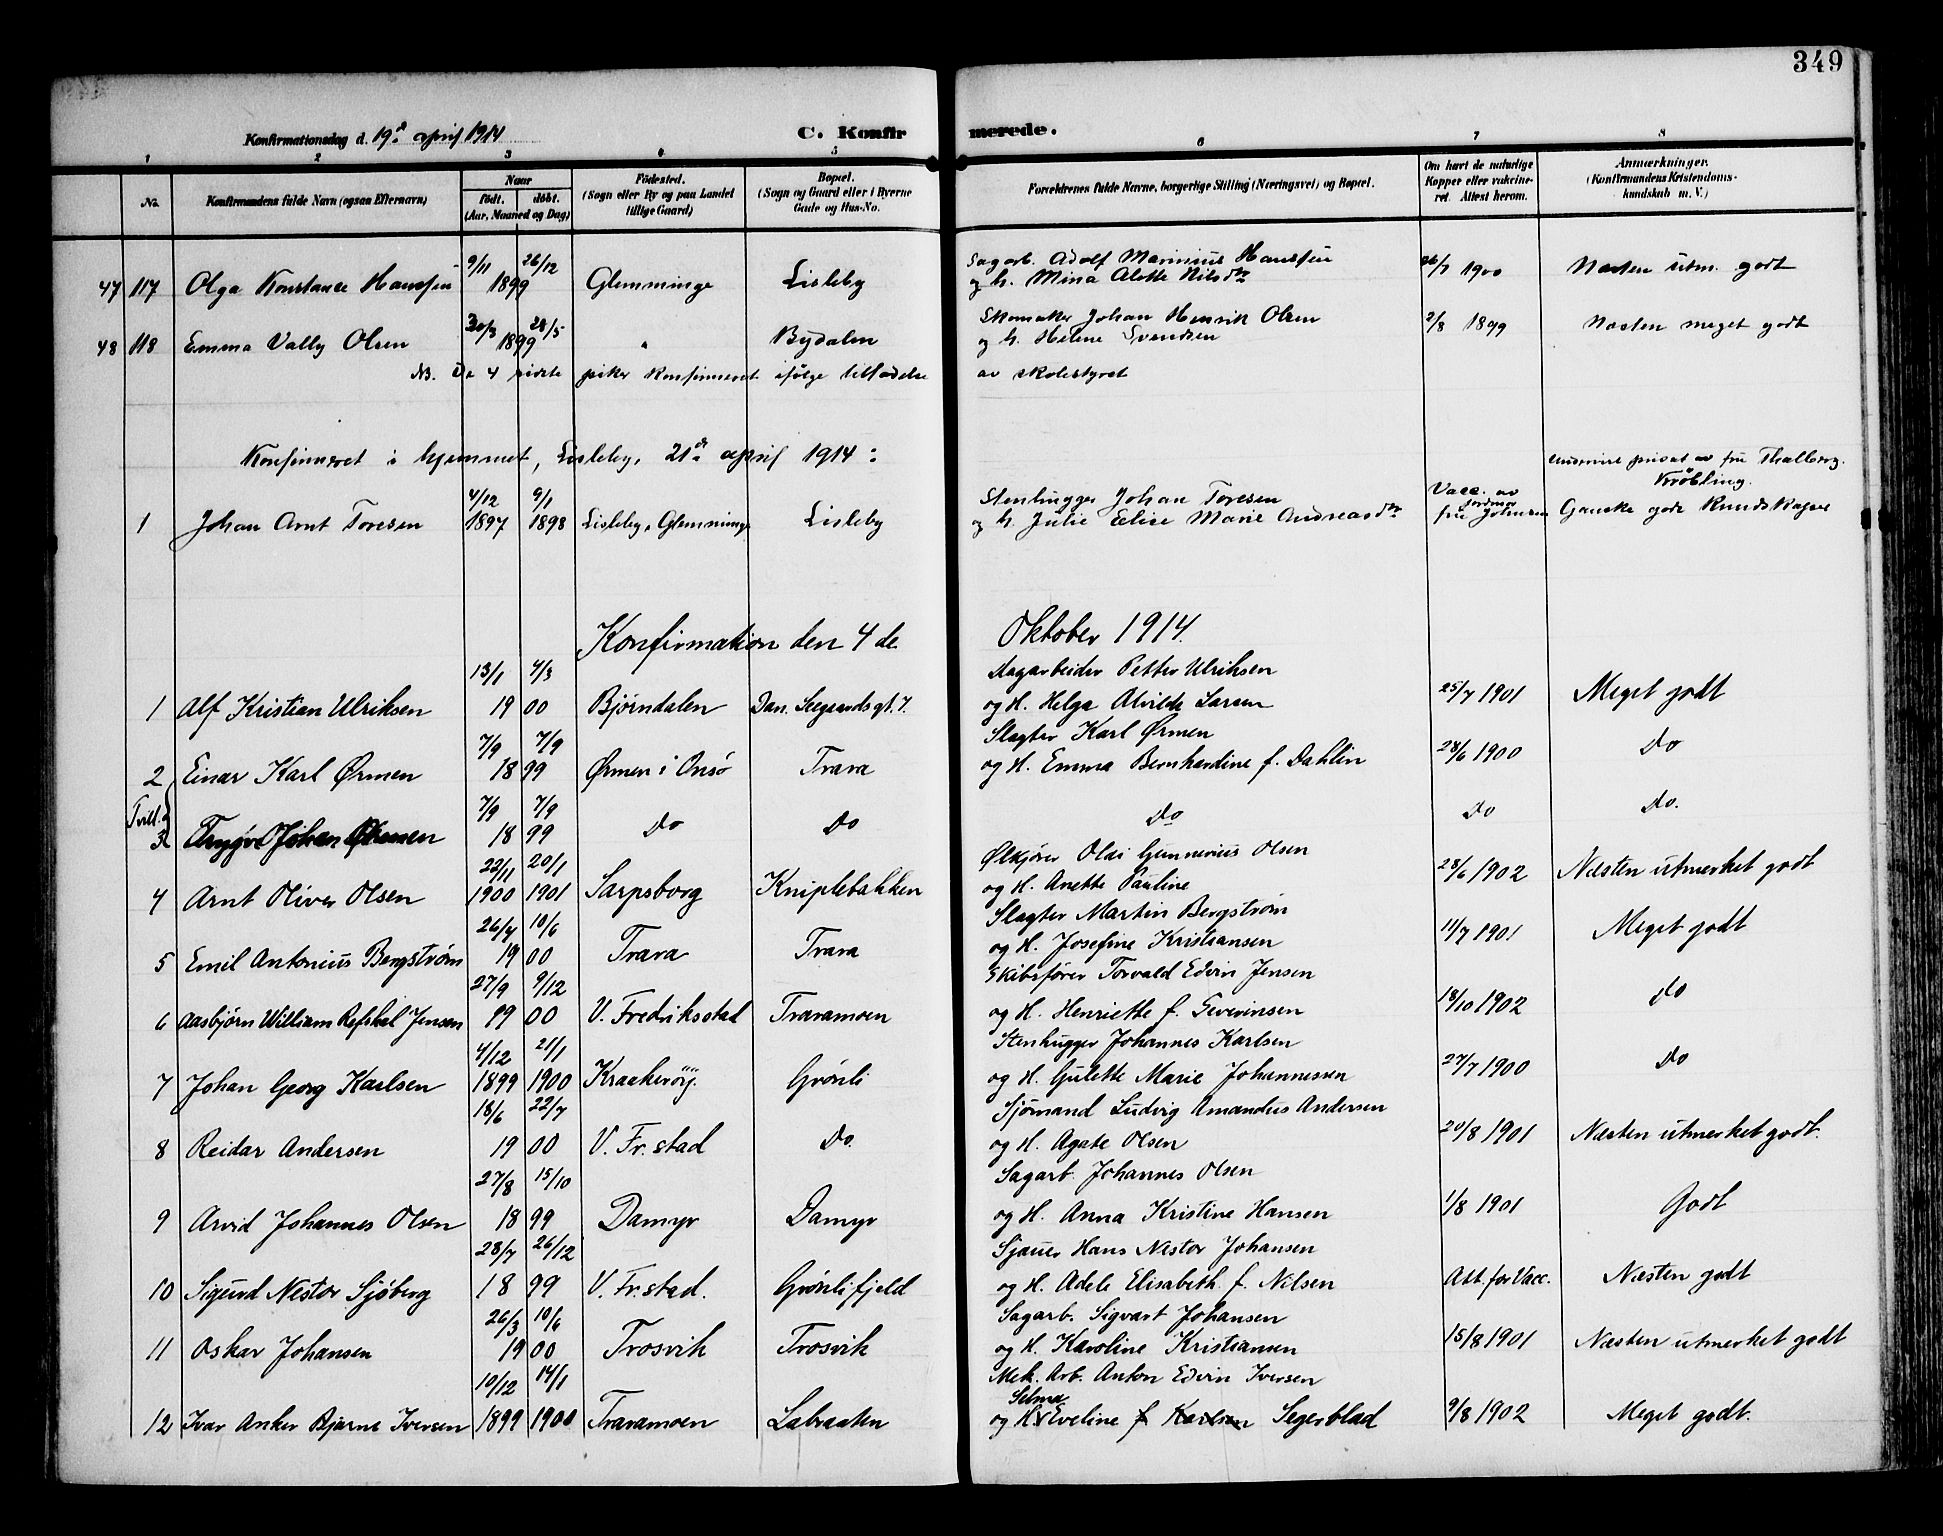 349
Konfirmationsdag d. 19de april 1914
C. Konfirmerede.
1 2 3 4 5 6 7 8
No. Konfirmandens fulde Navn (ogsaa Efternavn) Naar født. døbt. (Aar, Maaned og Dag) Fødested. (Sogn eller By og paa Landet tillige Gaard) Bopæl. (Sogn og Gaard eller i Byerne Gade og Hus-No. Forældrenes fulde Navne, borgerlige Stilling (Næringsvei) og Bopæl. Om havt de naturlige Kopper eller vakcineret. Attest herom. Anmærkninger. (Konfirmandens Kristendomskundskab m. V.)
9/11 26/12 Sagarb. Adolf Marinius Hanssen
47 117 Olga Konstance Hanssen 1899 Glemminge Lisleby og h. Mina Alette Nilsdtr 26/7 1900 Næsten utm. godt
30/3 28/5 Skomaker Johan Henrik Olsen
48 118 Emma Vally Olsen 1899 " Bydalen og h. Helene Svendsen 2/8 1899 Næsten meget godt
NB. De 4 sidste piker konfirmeret ifølge tilladelse av skolestyret
Konfirmeret i hjemmet, Lisleby, 21de april 1914:
undervist privat av fru Thalberg.
Kröbling.
4/12 9/1 Stenhugger Johan Toresen Vacc. av jordmor
1 Johan Arnt Toresen 1897 1898 Lisleby, Glemminge Lisleby og h. Julie Elise Marie Andreasdtr fru Johnsen Ganske gode Kundskaper
Konfirmation den 4de Oktober 1914.
13/1 4/3 Sagarbeider Petter Ulriksen
1 Alf Kristian Ulriksen 1900 Bjørndalen Dan. Seegaardsgt. 7. og H. Helga Alvilde Larsen 25/7 1901 Meget godt
7/9 7/9 Slagter Karl Ørmen
2 Einar Karl Ørmen 1899 Ørmen i Onsø Trara og H. Emma Bernhardine f. Dahlin 28/6 1900 Do
Tvill. 7/9 7/9
3 Trygve Johan Ørmen 1899 Do Do Do Do Do.
22/11 20/1 Ølkjører Olai Gunnerius Olsen
4 Arnt Oliver Olsen 1900 1901 Sarpsborg Kniplebakken og H. Anette Pauline 28/6 1902 Næsten utmerket godt
26/4 10/6 Slagter Martin Bergstrøm
5 Emil Antonius Bergstrøm 1900 Trara Trara og H. Josefine Kristiansen 11/7 1901 Meget godt
27/9 9/12 Skibsfører Torvald Edvin Jensen
6 Aasbjørn William Refshal Jensen 1900 V. Fredriksstad Traramoen og H. Henriette f. Severinsen 18/10 1902 Do
4/12 21/1 Stenhugger Johannes Karlsen
7 Johan Georg Karlsen 1899 1900 Kraakerøy. Grønli og H. Gulette Marie Johannessen 27/7 1900 Do
18/6 22/7 Sjømand Ludvig Amandus Andersen
8 Reidar Andersen 1900 V. Fr.stad Do. og H. Agate Olsen 20/8 1901 Næsten utmerket godt.
27/8 15/10 Sagarb. Johannes Olsen
9 Arvid Johannes Olsen 1899 Damyr Damyr og H. Anna Kristine Hansen 1/8 1901 Godt
28/7 26/12 Sjauer Hans Nestor Johansen
10 Sigurd Nestor Sjøberg 1899 V. Fr.stad. Grønlifjeld og H. Adele Elisabeth f. Nilsen Att. for Vacc. Næsten godt
26/3 10/6 Sagarb. Sigvart Johansen
11 Oskar Johansen 1900 Trosvik Trosvik og H. Karoline Kristiansen 15/8 1901 Næsten utmerket godt
10/12 14/1 Mek. Arb. Anton Edvin Iversen
Selma
12 Ivar Anker Bjarne Iversen 1899 1900 Traramoen Labraaten og H. Eveline f. Karlsen Segerblad 9/8 1902 Meget godt.